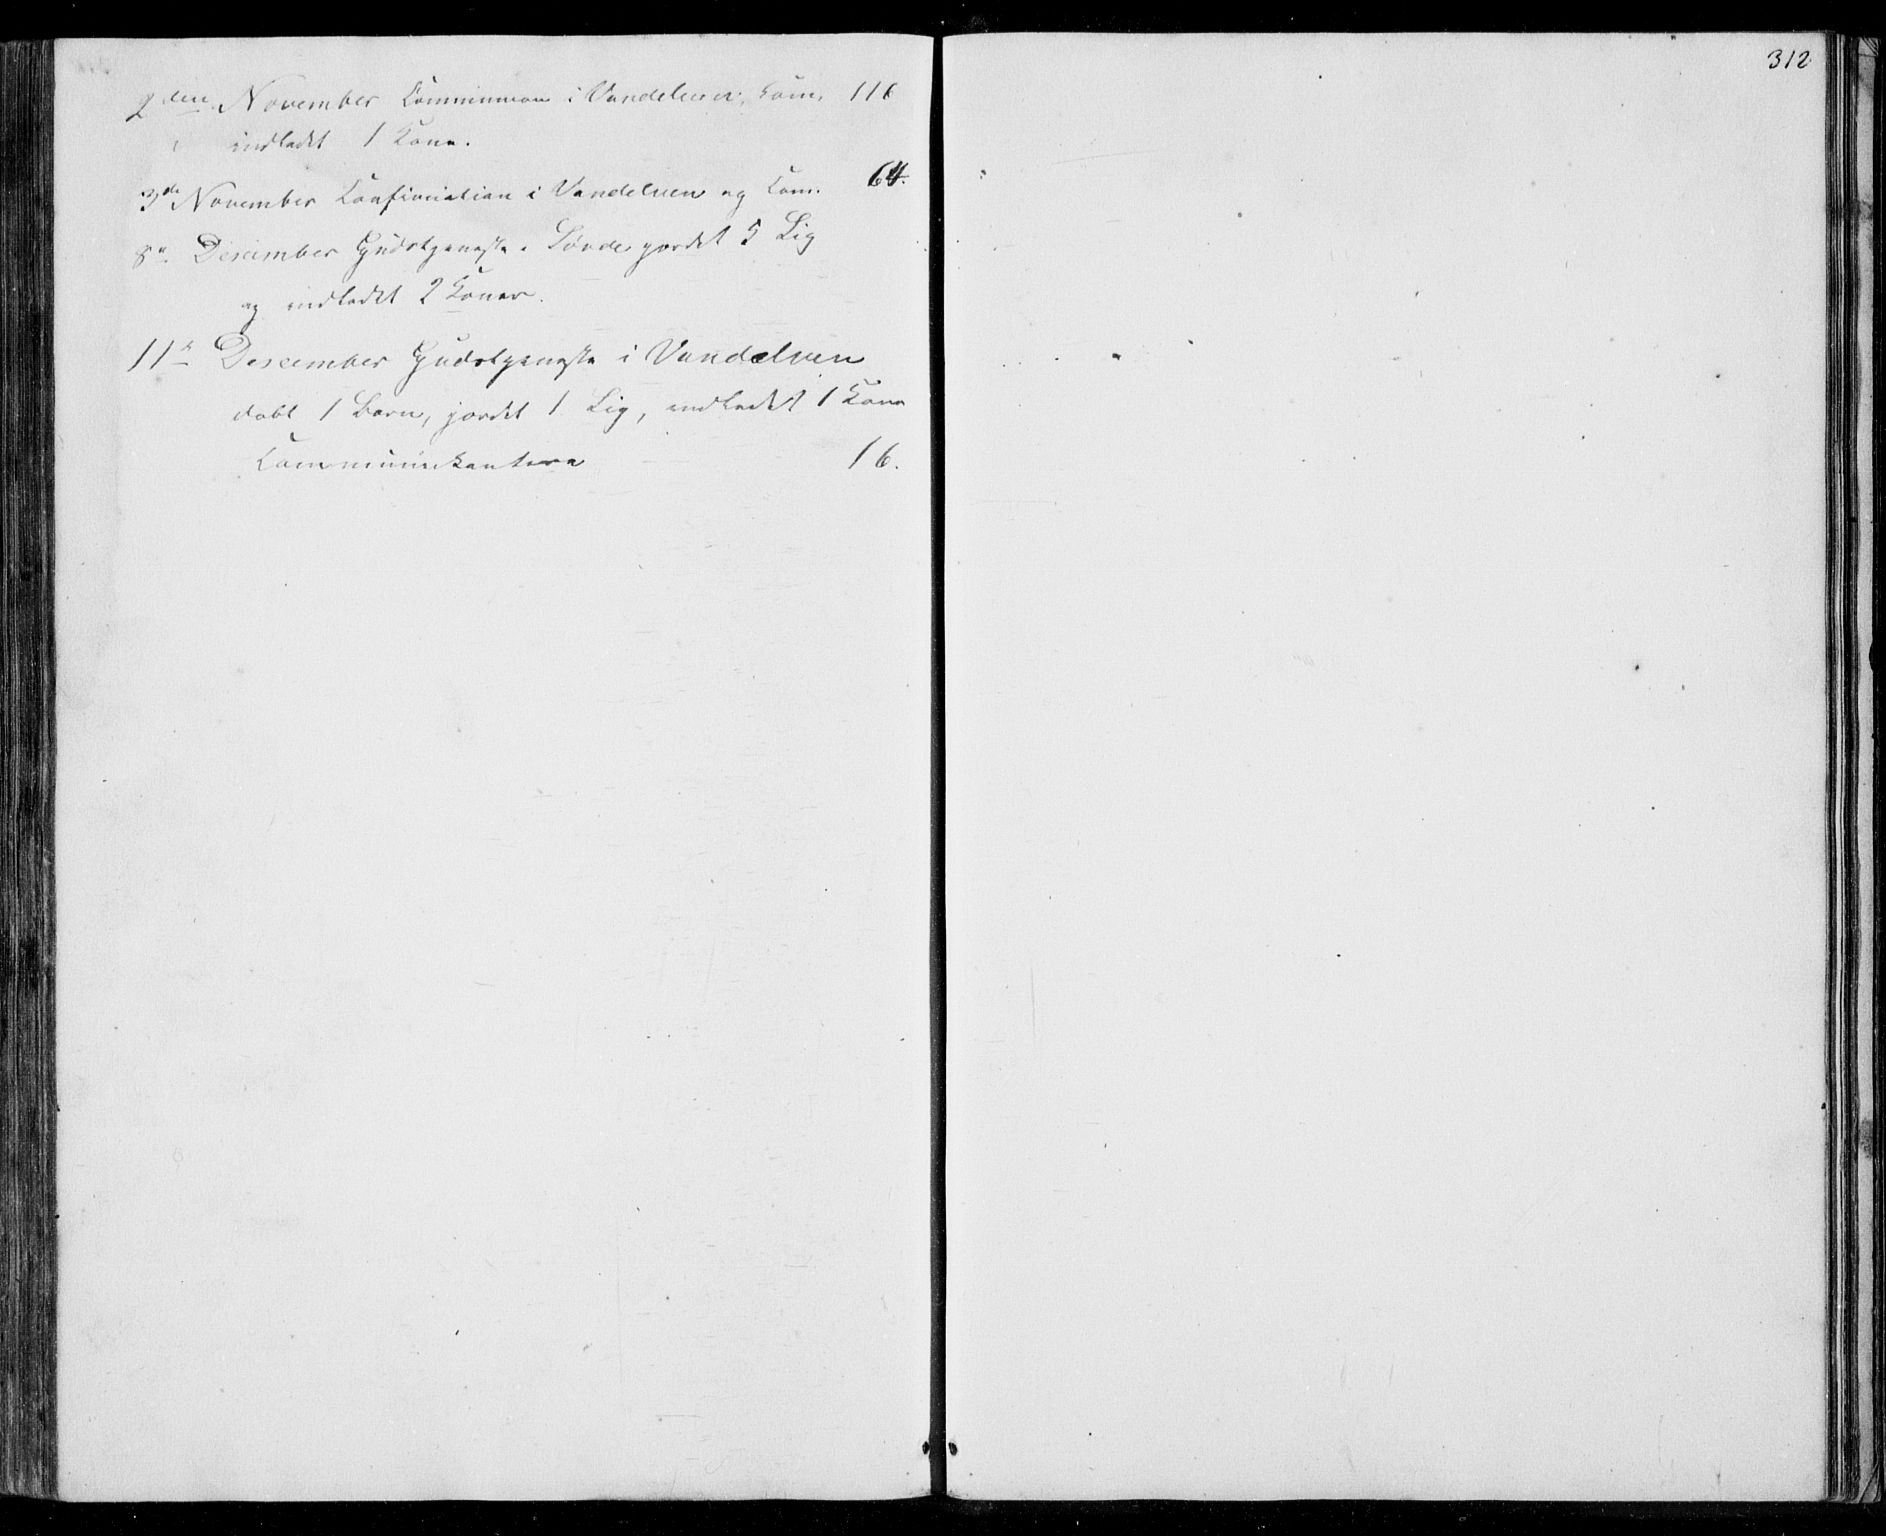 2den November Communion i Vandelven, Com. 116
indledt 1 Kone.
3de November Konfirmation i Vandelven og Com. 64.
8de December Gudstjeneste i Sövde jordet 5 Lig
og indledt 2 Koner.
11te Descember Gudstjeneste i Vandelven
døbt 1 Barn, jordet 1 Lig, indledet 1 Kone
Communikantere 16.
312